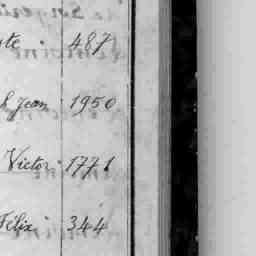 487
Jean 1950
Victor 1771
Félix 344